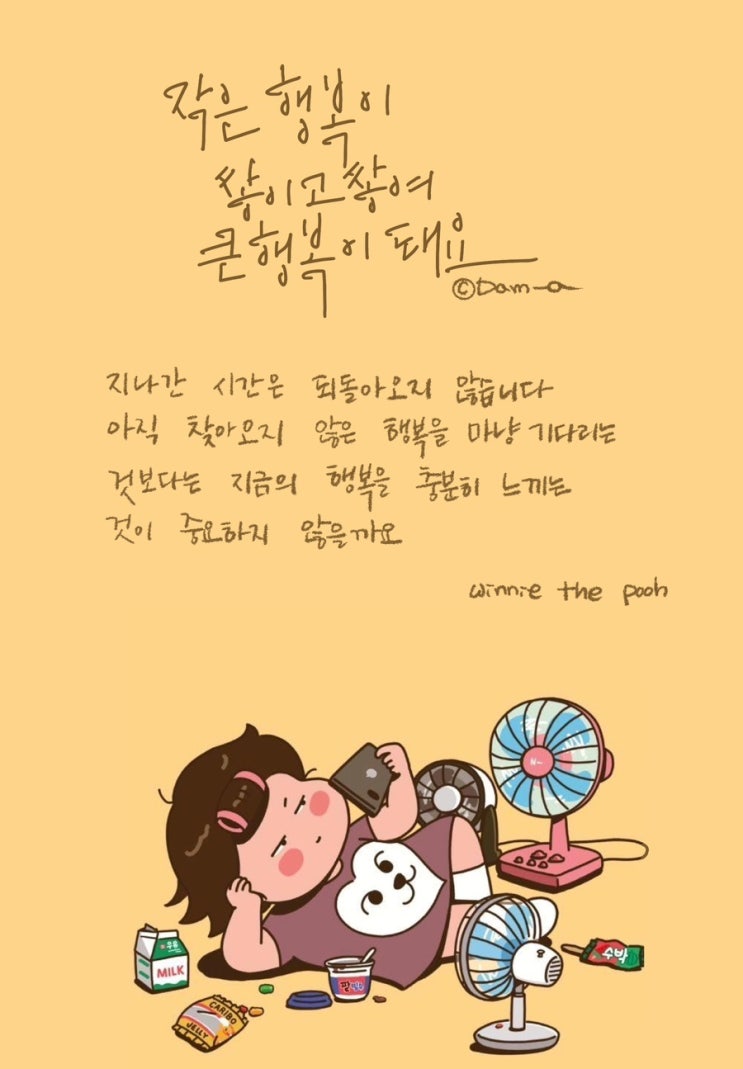 작은 행복이
쌓이고 쌓여
큰 행복이 돼요
©Dam-a
지나간 시간은 되돌아오지 않습니다
아직 찾아오지 않은 행복을 마냥 기다리는
것보다는 지금의 행복을 충분히 느끼는
것이 중요하지 않을까요
winnie the pooh
N~
우유
MILK
수박
CARIBO
JELLY
팥